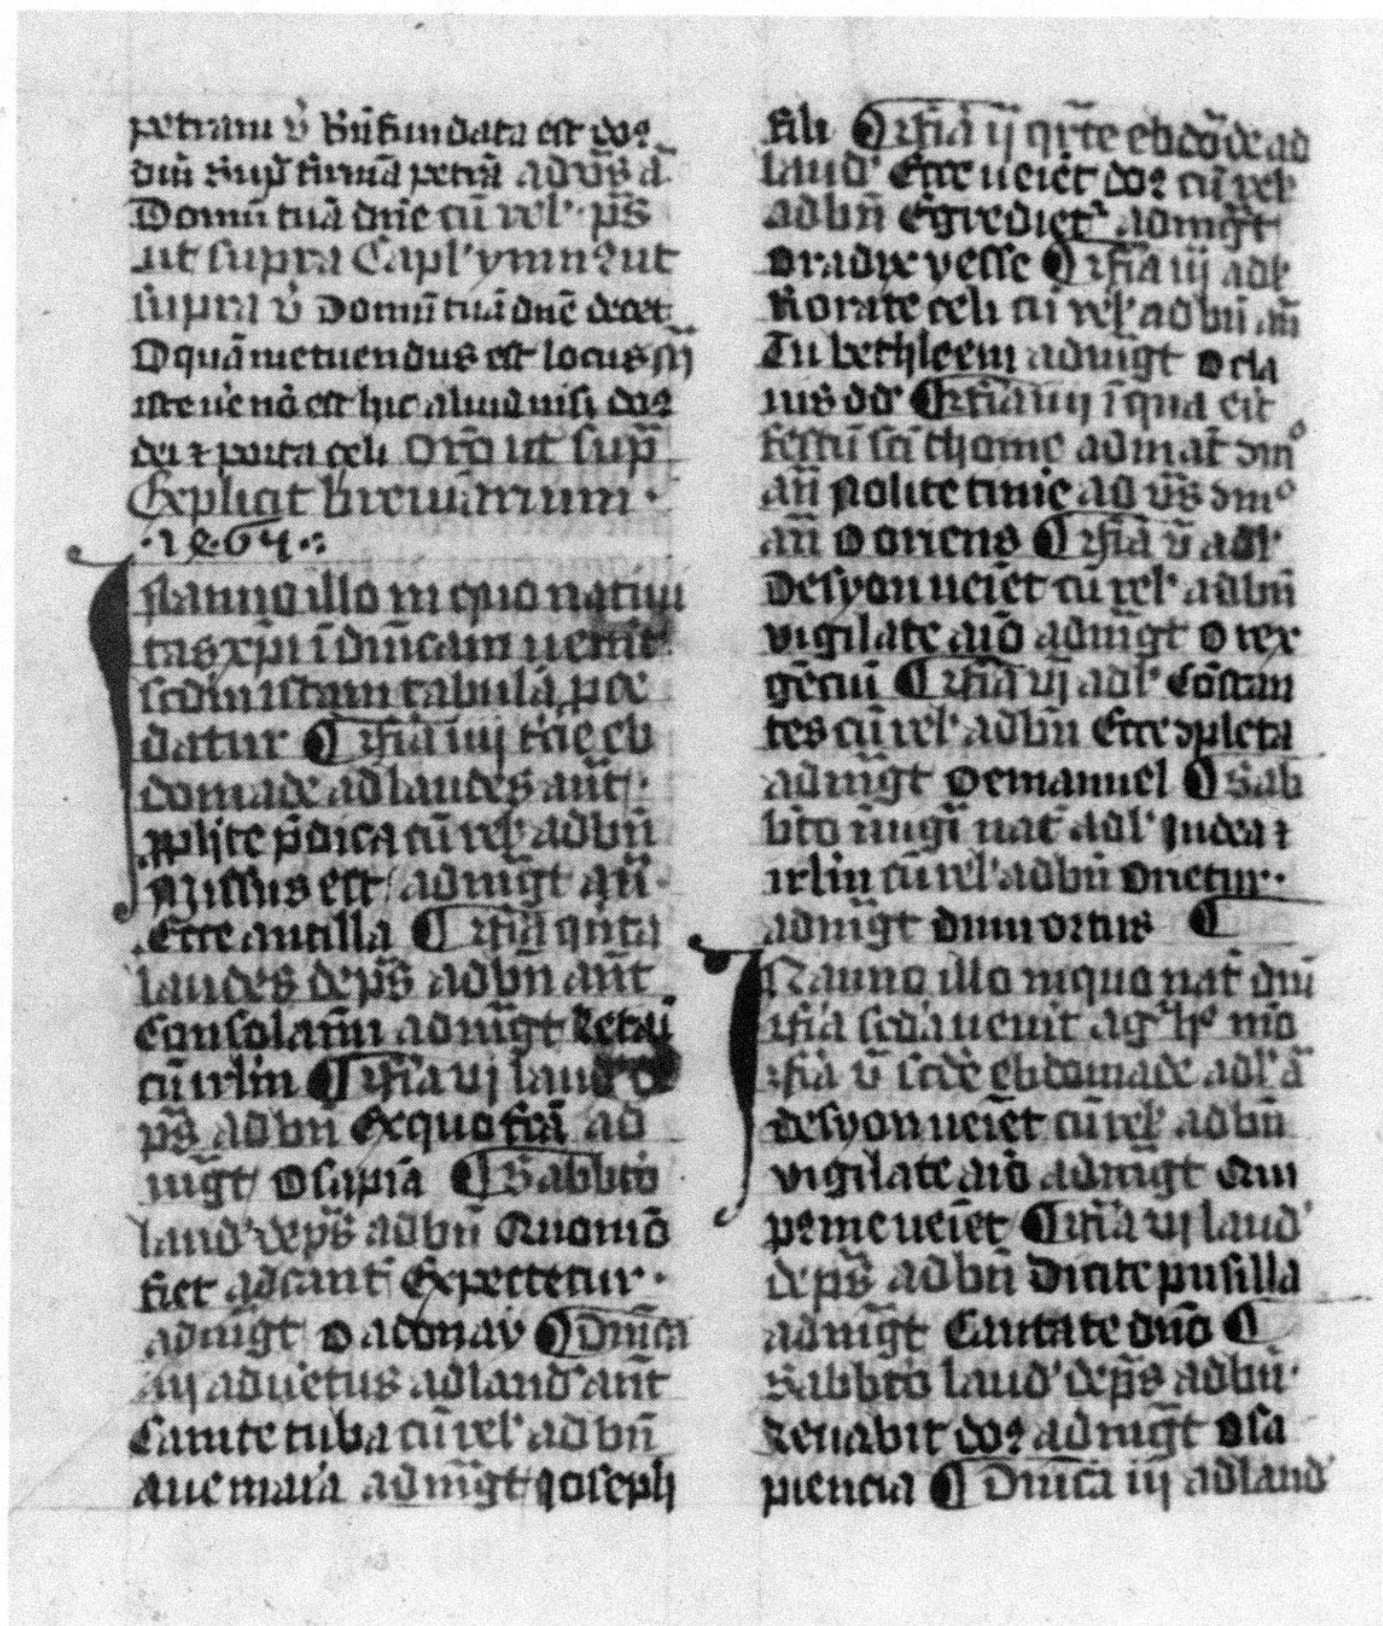 petram v̓ Bn̄ fundata est do⁊
dn̄i sup̄ firmā petrā ad vs̄ a᷑
Domū tuā dn̄e cū rel' p̄s
ut supra Capl' ymn⁊ ut
supra v̓ Domū tuā dn̄e decet
O quā metuendus est locus
iste ue᷑ nō est hic aliud nisi do⁊
dei ⁊ porta celi Orō ut sup̄
Explicit breuiarium ·
·1464·
Ista anno illo in quo natiui
tas xp̄i ī dn̄icam uenit
scd̄m istam tabulā p̱ce
datur ¶ fīa iiij t̄cie eb
domade ad laudes an̄t
p̱phete p̄dicā cū rel' ad bn̄
Missus est ad mḡt an̄
Ecce ancilla ¶ fīa qn̄ta
laudes de p̄s ad bn̄ an̄t
Consolam̄i ad mḡt letam̄i
cū irlm̄ ¶ fīa vj laud' de
p̄s ad bn̄ Ex quo fc̄ā ad
mḡt O sapiā ¶ Sabbto
laud' de p̄s ad bn̄ Quomō
fiet ad cant' Expectetur ·
ad mḡt O adonay ¶ Dn̄ica
iiij aduētus ad laud' an̄t
Canite tuba cū rel' ad bn̄
aue maīa ad mḡt ioseph
fili ¶ fīa ij qr̄te ebdōde ad
laud' Ecce ueiet do⁊ cū rel'
ad bn̄ Egrediet᷑ ad mḡt
O radix yesse ¶ fīa iij ad l'
Rorate celi cū rel' ad bn̄ an̄
Tu bethleem ad mḡt O cla
uis dd' ¶ fīa iiij ī qua eit
festū sc̄i thome ad mat̄ dm̄ᵒ
an̄ Nolite timē ad vs̄ dm̄ᵒ
an̄ O oriens ¶ fīa v̄ ad l'
De syon ueiet cū rel' ad bn̄
vigilate aīō ad mḡt O rex
gēciū ¶ fīa vj ad l' Cōstan
tes cū rel' ad bn̄ Ecce ɔpleta
ad mḡt O emanuel ¶ Sab
bto in uigī nat̄ ad l' Iudea ⁊
irlm̄ cū rel' ad bn̄ Orietur ·
ad mḡt Dum ortus ¶
In anno illo in quo nat̄ dn̄i
fīa scd̄a uenit agᵃ hᵒ mō
fīa v̄ scd̄e ebdomade ad l' a᷑
de syon ueiet cū rel' ad bn̄
vigilate aīō ad mḡt Qui
p⁊ me ueiet ¶ fīa vj laud'
de p̄s ad bn̄ Dicite pusilla
ad mḡt Cantate dn̄o ¶
Sabbto laud' de p̄s ad bn̄ ·
Leuabit do⁊ ad mḡt O sa
piencia ¶ Dn̄ica iij ad laud'